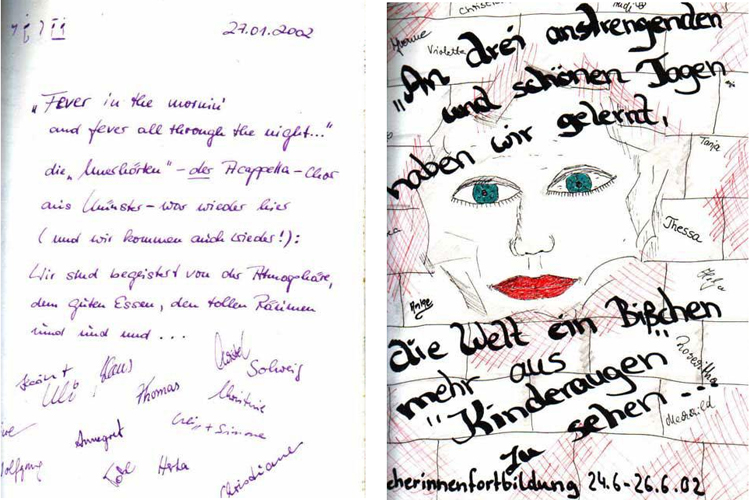 27.01.2002
„Fever in the mornin'
and fever all through the night..."
die „Unerhörten" – der Acappella-Chor
aus Münster – war wieder hier
(und wir kommen auch wieder!):
Wir sind begeistert von der Atmosphäre,
dem guten Essen, den tollen Räumen
und und und ...
Klaus
Solveig
Ulli
Thomas
Christine
Annegret
+ Simone
Herta
Christiane
Yvonne
Violetta
"An drei anstrengenden
und schönen Tagen
haben wir gelernt,
Tanja
Thessa
Helga
Anke
die Welt ein Bißchen
mehr aus
Roswitha
"Kinderaugen"
zu sehen...
cherinnenfortbildung 24.6-26.6.02